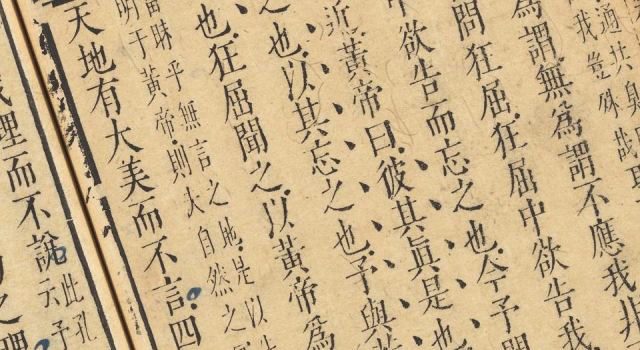 我豈殊哉
爲謂無爲謂不應我非
問狂屈狂屈中欲告我
中欲告而忘之也今予問
近黃帝曰彼其眞是也
之也以其忘之也予與若
也狂屈聞之以黃帝爲
昧乎無言之地是以
明于黃帝則大自然之
天地有大美而不言四
理而不說
此孔
云予
之理